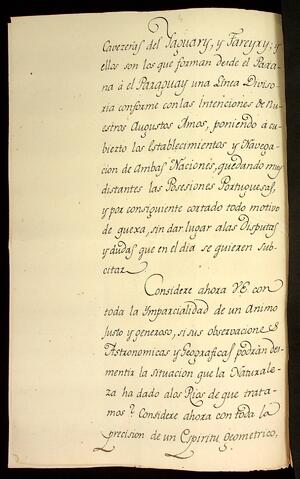 Cavezeras del Yaguary, y Fareyry; y
ellos son los que forman desde el Para-
na á el Paraguay una Linea Diviso-
ria conforme con las Intenciones de Nu-
estros Augustos Amos, poniendo á cu-
bierto los Establecimientos y Navega-
cion de Ambas Naciones, quedando muy
distantes las Posesiones Portuguesas,
y por consiguiente cortado todo motivo
de guerra, sin dar lugar a las Disputas
y dudas que en el dia se quieren sub-
citar.
Considere ahora V.E. con
toda la Imparcialidad de un Animo
Justo y generoso, si sus observaciones
Astronomicas y Geograficas podrán des-
mentir la situacion que la Naturale-
za ha dado a los Rios de que trata-
mos? Considere ahora con toda la
precision de un Espiritu geometrico,